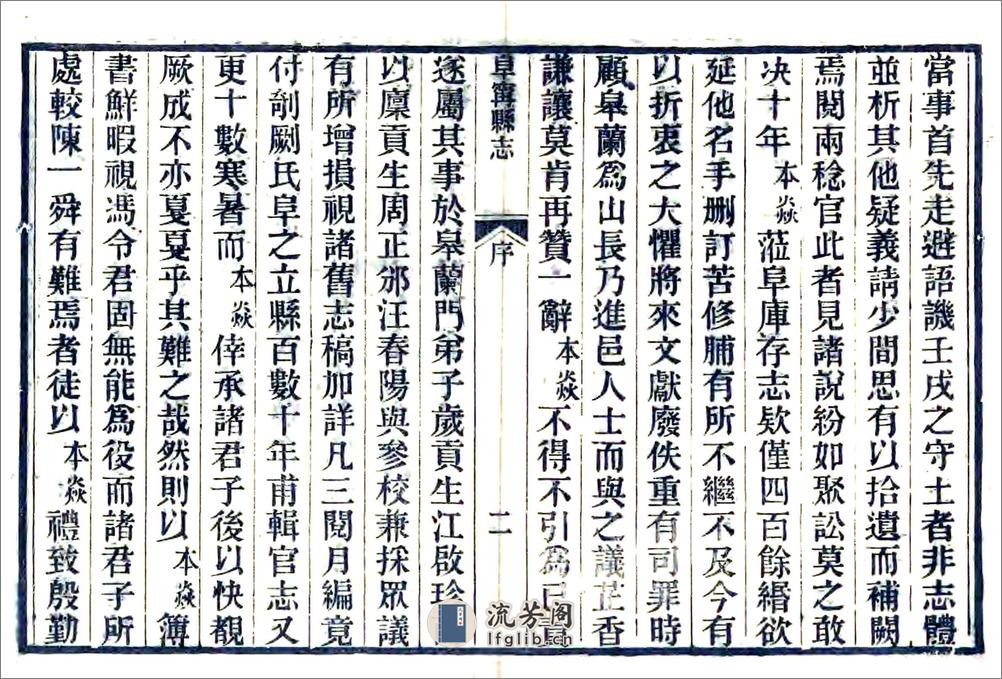 當事首先走避語譏壬戌之守土者非志體
並析其他疑義請少間思有以拾遺而補闕
焉閱兩稔官此者見諸說紛如聚訟莫之敢
决十年本焱蒞阜庫存志欵僅四百餘緡欲
延他名手删訂苦修脯有所不繼不及今有
以折衷之大懼將來文獻廢佚重有司罪時
顧皋蘭爲山長乃進邑人士而與之議芷香
謙讓莫肯再贊一辭本焱不得不引爲已
阜寧縣志
序
二
遂屬其事於皋蘭門弟子歲貢生江啟珍
以廩貢生周正邠汪春陽與參校兼採眾議
有所增損視諸舊志稿加詳凡三閱月編竟
付剞劂氏阜之立縣百數十年甫輯官志又
更十數寒暑而本焱倖承諸君子後以快覩
厥成不亦戛戛乎其難之哉然則以本焱簿
書鮮暇視馮令君固無能爲役而諸君子所
處較陳一舜有難焉者徒以本焱禮致殷勤
流芳阁
lfglib.cn